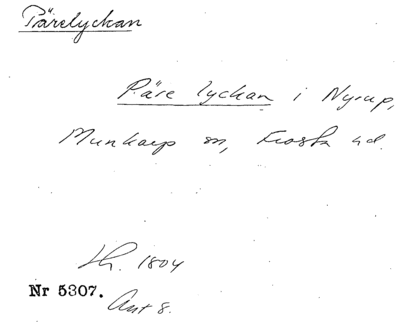 Pärelyckan
Päre lyckan i Nyrup,
Munkarp sn, Frosta hd.
Lh. 1804
Nr 5307.
Ant 8.